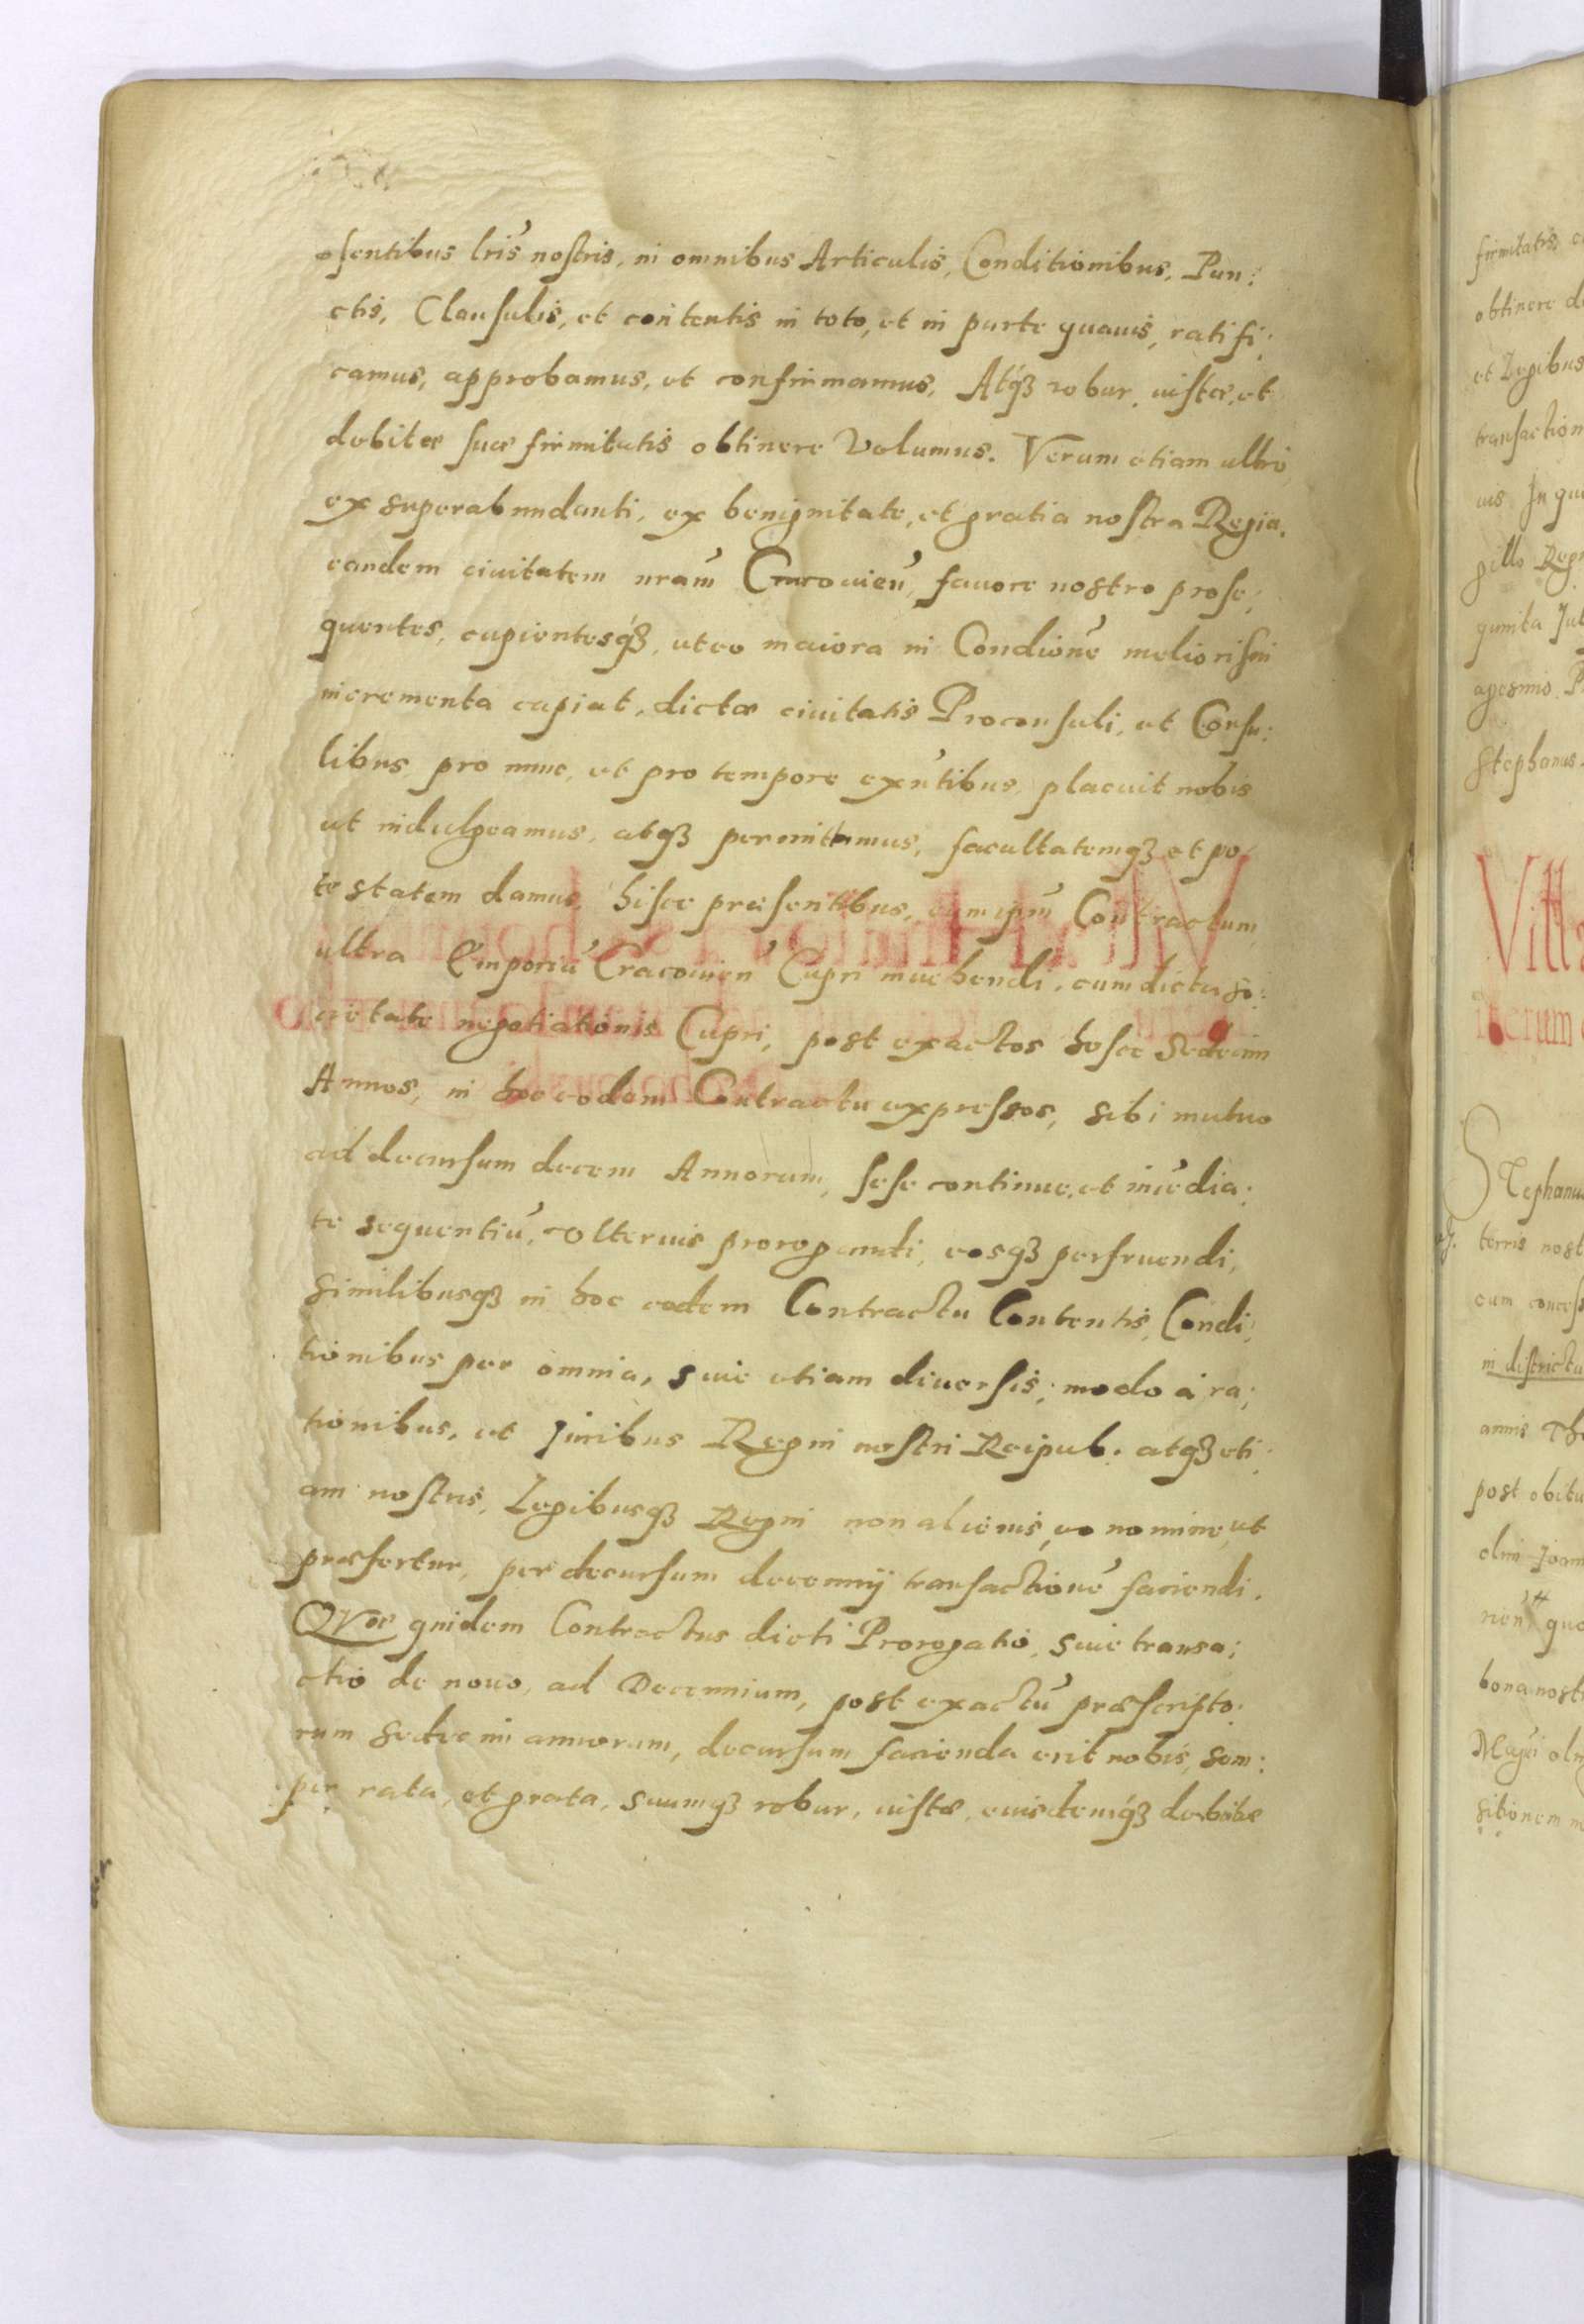 sentibus lris nostris, in omnibus Articulis, Conditionibus, Pun:
ctis, Clausulis, et contentis in toto, et in parte quauis, ratifi:
camus, approbamus, et confirmamus, Atq3 robur, iustæ, et
debitæ suæ firmitatis obtinere Volumus. Verum etiam ultro
ex superabundanti, ex benignitate, et gratia nostra Regia,
eandem ciuitatem nram Cracouien, fauore nostro prose:
quentes, cupientesq3, ut eo maiora in Condione meliori sui
incrementa capiat, dictæ ciuitatis Proconsuli, et Consu:
libus pro nunc, et pro tempore exntibus, placuit nobis
ut indulgeamus, atq3 permittamus, facultatemq3 et po:
testatem damus, hisce præsentibus, eum ipsm Contractum
ultra Emporiu Cracouien Cupri inuehendi, cum dicta so:
cietate negotiationis Cupri, post exactos hosce Sedecim
Annos, in hoc eodem Contractu expressos, sibi mutuo
ad decursum decem Annorum, sese continuo, et imedia:
te sequentiu, Vlterius prorogandi, eosq3 perfruendi,
similibusq3 in hoc eodem Contractu Contentis, Condi:
tionibus per omnia, siue etiam diuersis; modo à ra:
tionibus, et Iuribus Regni nostri Reipub. atq3 eti:
am nostris, Legibusq3 Regni non alienis, eo nomine, ut
præfertur, per decursum decennij transactione faciendi.
QVæ quidem Contractus dicti Prorogatio, siue transa:
ctio de nouo, ad Decennium, post exactu præscripto:
rum Sedecim annorum, decursum facienda erit nobis, sem:
per rata, et grata, suumq3 robur, iustæ, eiusdemq3 debitæ
firmitatis,
obtinere
et Legibus
transaction
uis In qu
gillo Regn
quinta Iul
agesimo. P
Stephanus
Vitt
iterum
Stephanus
terris nost
cum concess
in districtu
annis Th
post obitu
olim Joan
rien quo
bona nostr
olim
sitionem